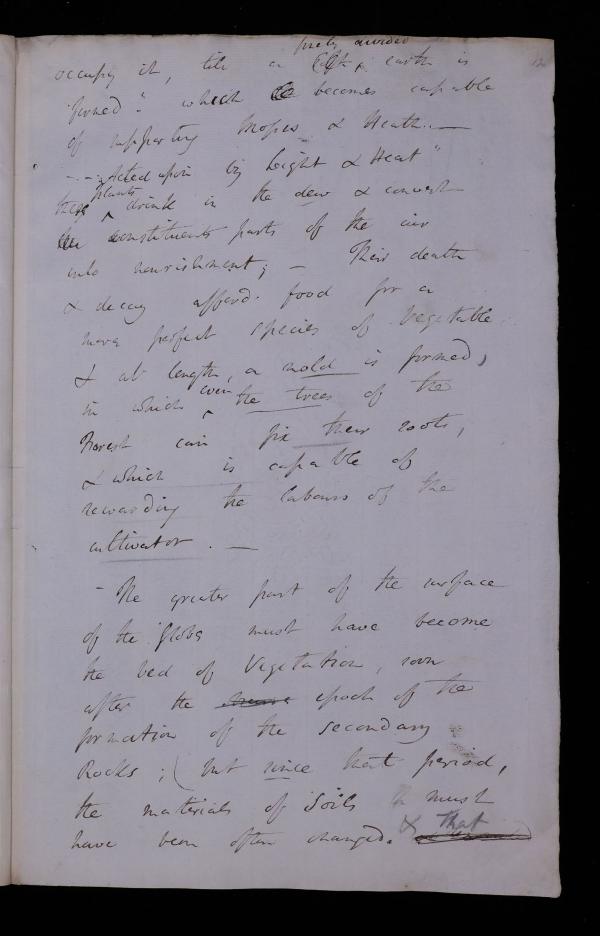 finely divided
occupy it, till a earth is
"formed" which becomes capable
of supporting Mosses & Heath. —
- - Acted upon by Light & Heat"
these plants drink in the dew & convert
constituent parts of the air
into nourishment; — Their death
& decay afford food for a
more perfect species of Vegetable
& at length, a mold is formed,
in which even the trees of the
Forest can fix their roots,
& which is capable of
rewarding the labours of the
cultivator. —
- The greater part of the surface
of the Globe must have become
the bed of Vegetation, soon
after the epoch of the
formation of the secondary
Rocks; (but since that period,
the materials of Soils must
have been often changed. & that